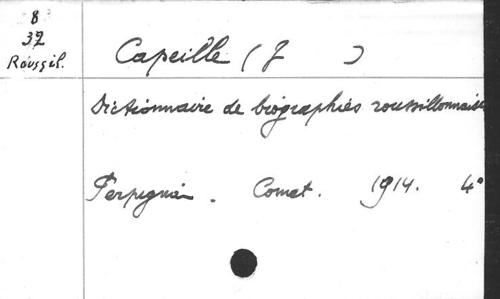 8
32
Roussil.
Capeille (J )
Dictionnaire de biographies roussillonnaises
Perpignan. Comet. 1914. 4°